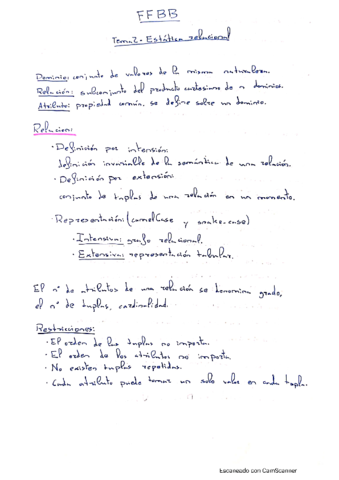 FFBB
Tema 2 - Estática relacional
Dominio: conjunto de valores de la misma naturaleza.
Relación: subconjunto del producto cartesiano de n dominios.
Atributo: propiedad común, se define sobre un dominio.
Relación:
· Definición por intensión:
definición invariable de la semántica de una relación.
· Definición por extensión:
conjunto de tuplas de una relación en un momento.
· Representación: (camelCase y snake_case)
· Intensiva: grafo relacional.
· Extensiva: representación tabular.
El nº de atributos de una relación se denomina grado,
el nº de tuplas, cardinalidad.
Restricciones:
· El orden de las tuplas no importa.
· El orden de los atributos no importa.
· No existen tuplas repetidas.
· Cada atributo puede tomar un solo valor en cada tupla.
Escaneado con CamScanner